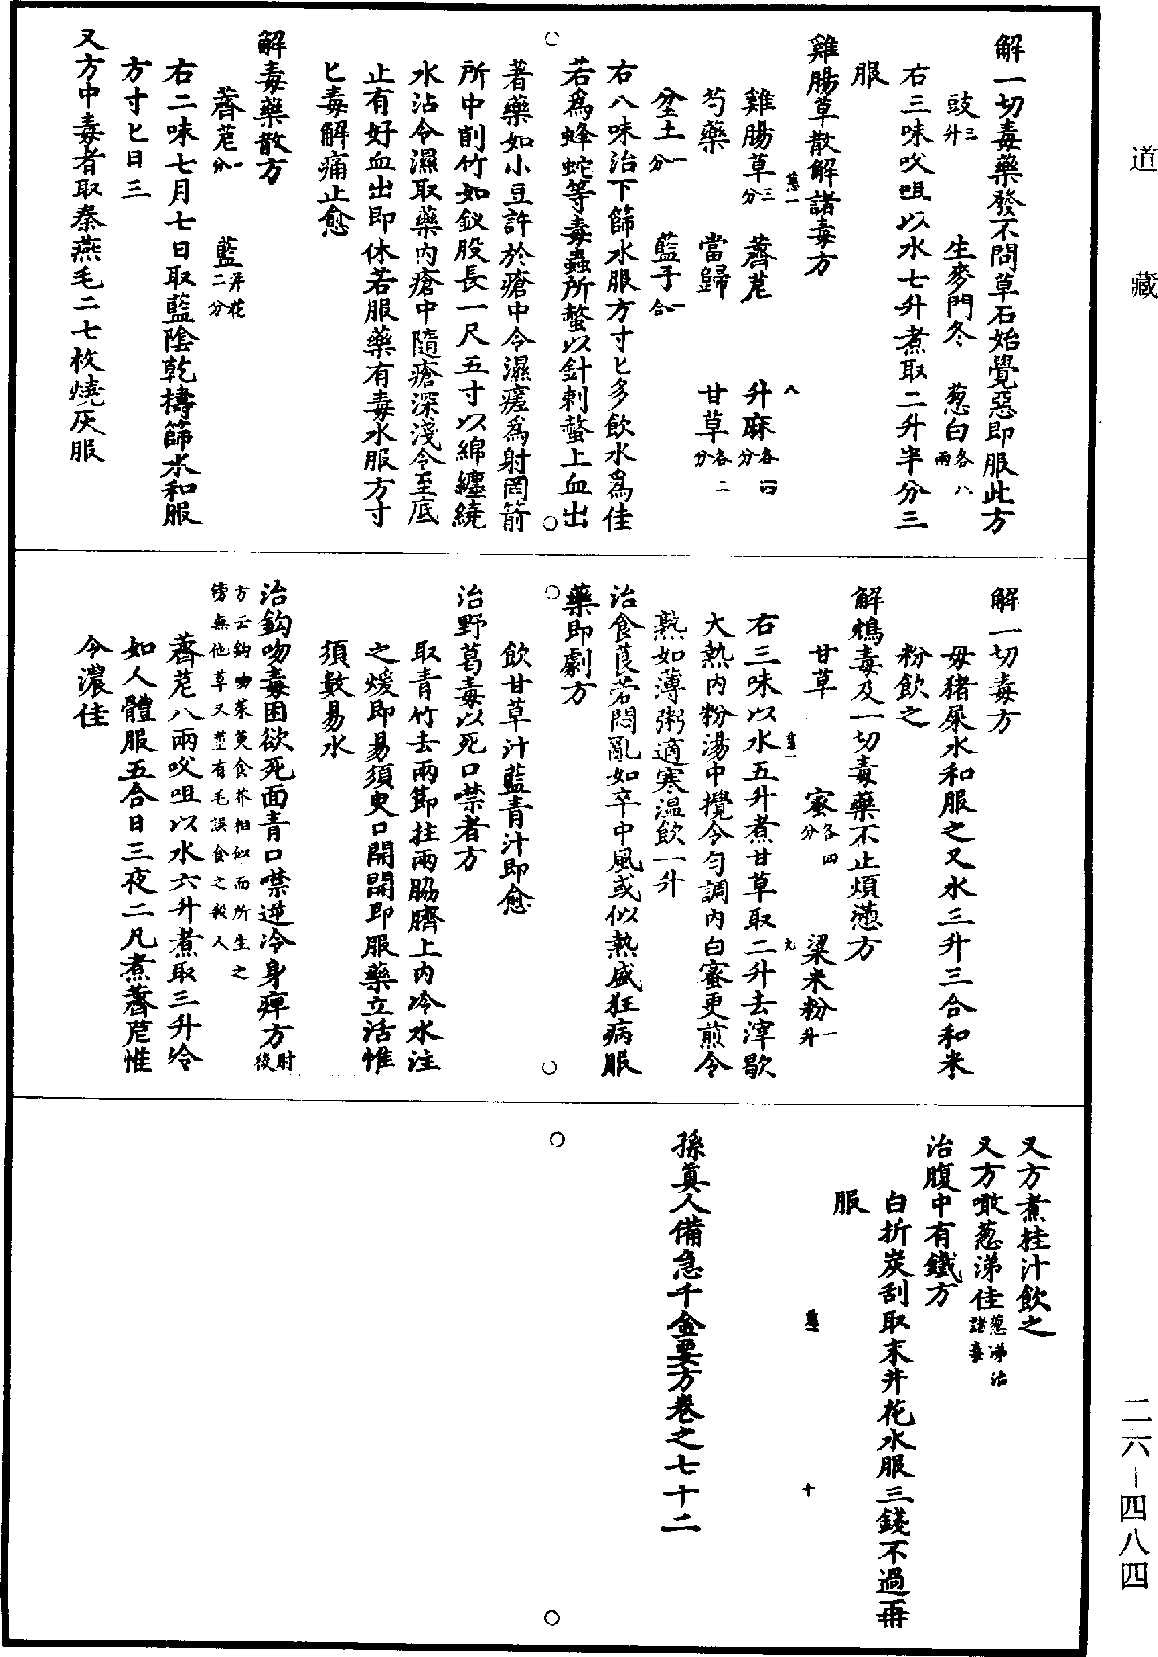 道藏
解一切毒藥發不問草石始覺惡即服此方
豉三升　生麥門冬　葱白各八兩
右三味㕮咀以水七升煮取二升半分三
服
雞腸草散解諸毒方
惠一　八
雞腸草三分　薺苨　升麻各四分
芍藥　當歸　甘草各二分
坌土一分　藍子一合
右八味治下篩水服方寸匕多飲水為佳
若為蜂蛇等毒蟲所螫以針刺螫上血出
著藥如小豆許於瘡中令濕瘥為射罔箭
所中削竹如釵股長一尺五寸以綿纏繞
水沾令濕取藥内瘡中隨瘡深淺令至底
止有好血出即休若服藥有毒水服方寸
匕毒解痛止愈
解毒藥散方
薺苨一分　藍并花二分
右二味七月七日取藍陰乾擣篩水和服
方寸匕日三
又方中毒者取秦燕毛二七枚燒灰服
解一切毒方
母猪屎水和服之又水三升三合和米
粉飲之
解鴆毒及一切毒藥不止煩懣方
甘草　蜜各四分　粱米粉一升
惠一　九
右三味以水五升煮甘草取二升去滓歇
大熱内粉湯中攪令匀調内白蜜更煎令
熟如薄粥適寒温飲一升
治食莨菪悶亂如卒中風或似熱盛狂病服
藥即劇方
飲甘草汁藍青汁即愈
治野葛毒以死口噤者方
取青竹去兩節拄兩脇臍上内冷水注
之煖即易須臾口開開即服藥立活惟
須數易水
治鈎吻毒困欲死面青口噤逆冷身痺方肘後
方云鈎吻茱萸食芥相似而所生之
傍無他草又莖有毛誤食之殺人
薺苨八兩㕮咀以水六升煮取三升冷
如人體服五合日三夜二凡煮薺苨惟
令濃佳
又方煮桂汁飲之
又方噉葱涕佳葱涕治諸毒
治腹中有鐵方
白折炭刮取末井花水服三錢不過再
服
惠一　十
孫真人備急千金要方卷之七十二
二六－四八四